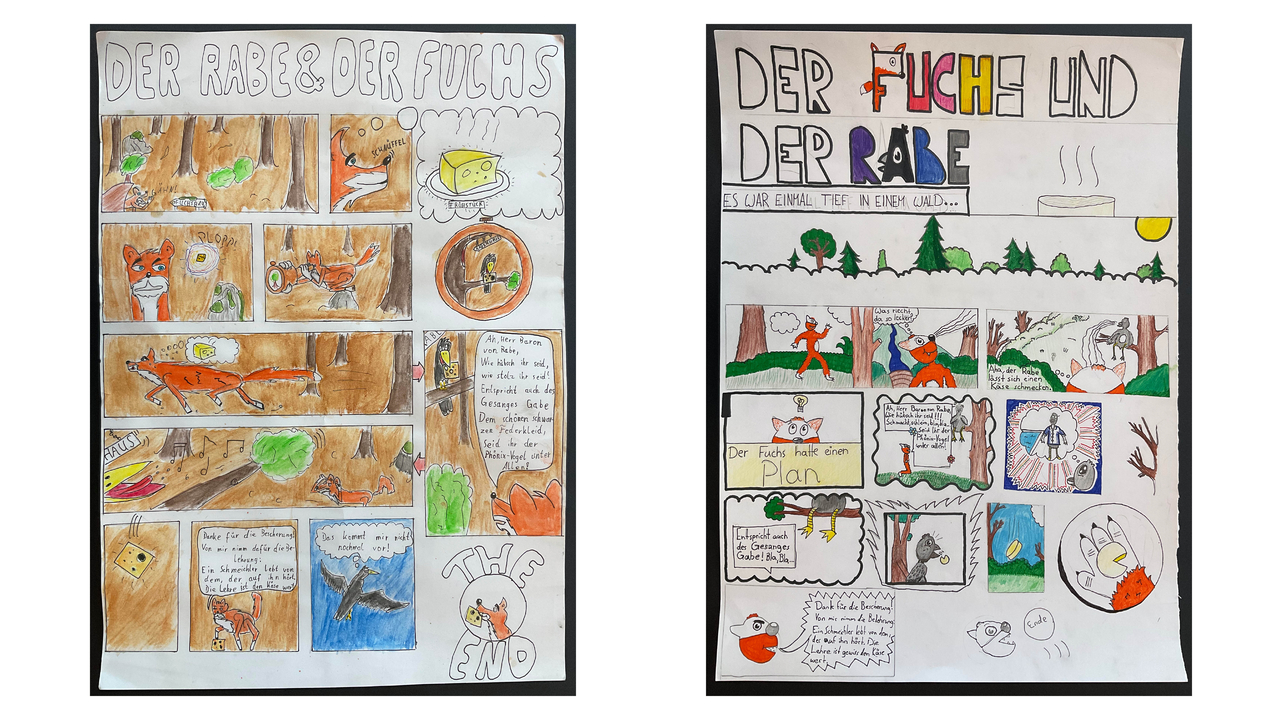 DER RABE & DER FUCHS
GÄHN!
SCHNÜFFEL
FRÜHSTÜCK
PLOPP!
Ah, Herr Baron
von Rabe,
Wie hübsch ihr seid,
wie stolz ihr seid!
Entspricht auch des
Gesanges Gabe
Dem schönen schwar-
zen Federkleid,
Seid ihr der
Phönix-Vogel unter
Allen!
Danke für die Bescherung!
Von mir nimm dafür die Be-
lehrung:
Ein Schmeichler lebt von
dem, der auf ihn hört,
Die Lehre ist den Käse wert
Das kommt mir nicht
nochmal vor!
THE
END
DER FUCHS UND
DER RABE
ES WAR EINMAL TIEF IN EINEM WALD...
Was riecht
da so lecker?
Aha, der Rabe
lässt sich einen
Käse schmecken.
Der Fuchs hatte einen
Plan
Ah, Herr Baron von Rabe,
Wie hübsch ihr seid!!!
Seid Ihr der
Phönix-Vogel
unter allen!
Entspricht auch
des Gesanges
Gabe! Bla, Bla...
Dank für die Bescherung!
Von mir nimm die Belehrung:
Ein Schmeichler lebt von dem
der auf ihn hört. Die
Lehre ist gewiss den Käse
wert
Ende